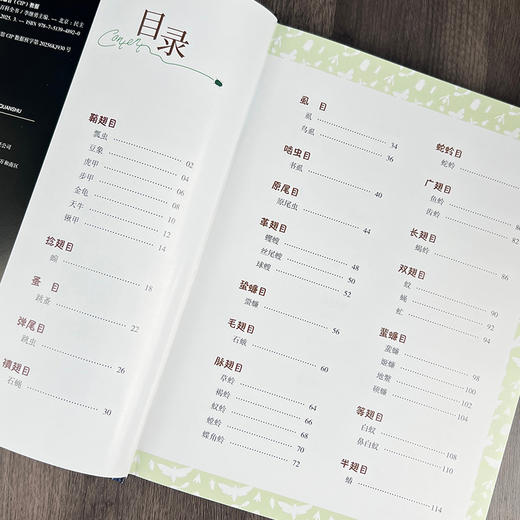 目录
鞘翅目
瓢虫 02
豆象 04
虎甲 06
步甲 08
金龟 10
天牛 12
锹甲 14
捻翅目
18
蚤 目
跳蚤 22
弹尾目
跳虫 26
襀翅目
石蝇 30
虱 目
虱 34
鸟虱 36
啮虫目
书虱 40
原尾目
原尾虫 44
革翅目
蠼螋 48
丝尾螋 50
球螋 52
蛩蠊目
蛩蠊 56
毛翅目
石蛾 60
脉翅目
草蛉 64
褐蛉 66
蚁蛉 68
螳蛉 70
蝶角蛉 72
蛇蛉目
蛇蛉
广翅目
鱼蛉
齿蛉 82
长翅目
蝎蛉 86
双翅目
蚊 90
蝇 92
虻 94
蜚蠊目
蜚蠊 98
姬蠊 100
地鳖 102
硕蠊 104
等翅目
白蚁 108
鼻白蚁 110
半翅目
蝽 114